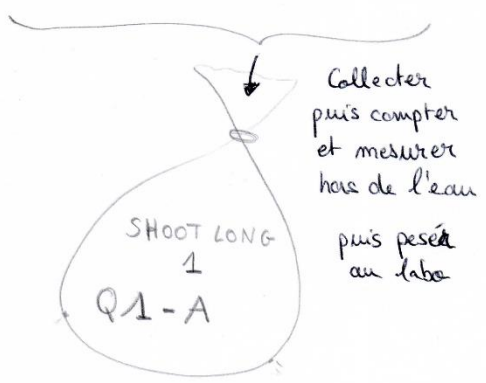 Collecter
puis compter
et mesurer
hors de l'eau
puis pesée
au labo
SHOOT LONG
1
Q1-A